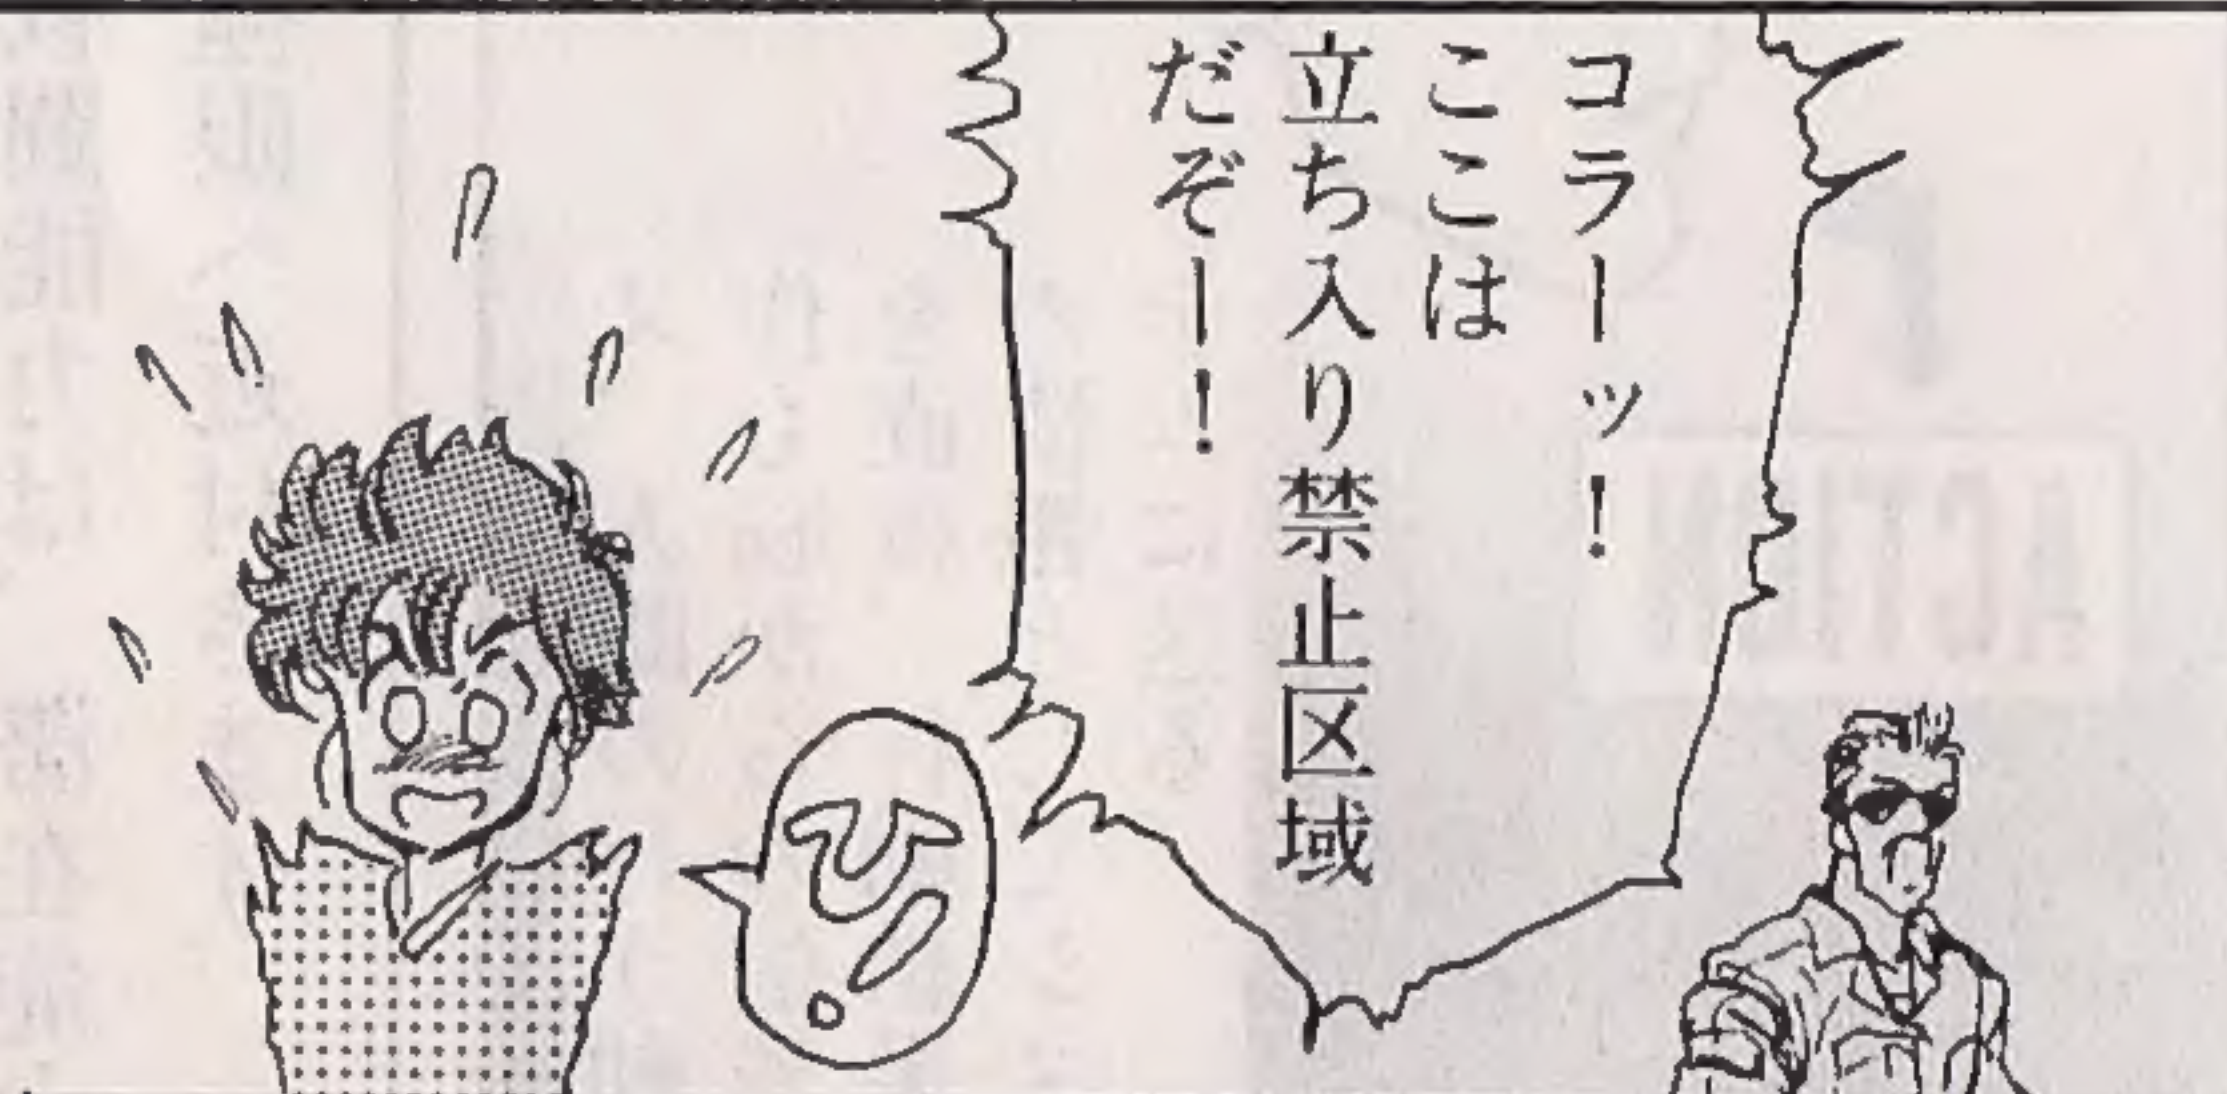 コラーッ!
ここは
立ち入り禁止区域
だぞー!
ひ!